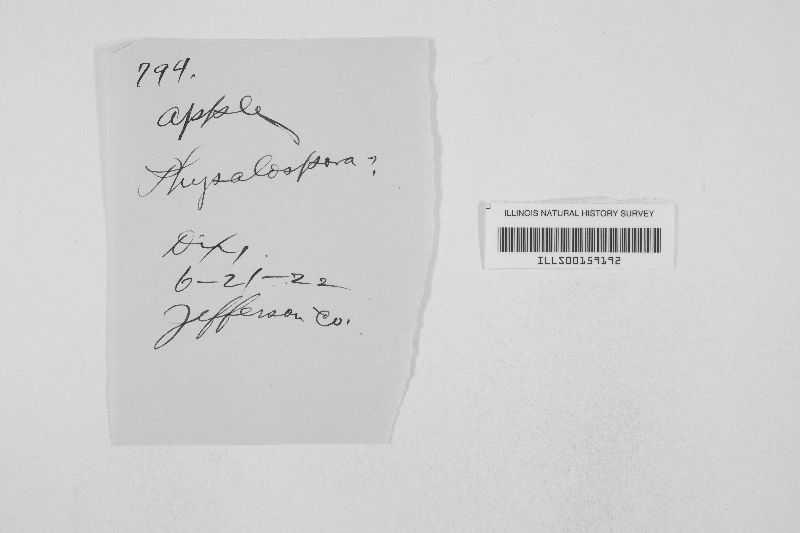 794.
Apple
Physalospora?
Dix,
6-21-22
Jefferson Co.
ILLINOIS NATURAL HISTORY SURVEY
ILLS00159192